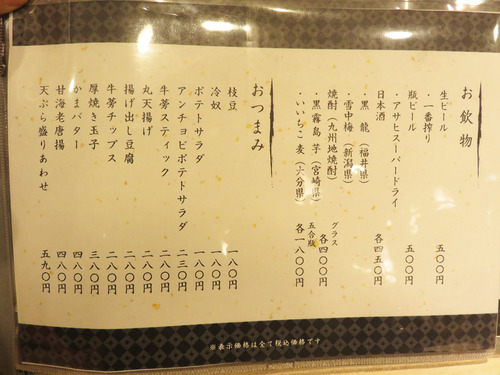 お飲物
生ビール
・一番搾り 五〇〇円
瓶ビール
・アサヒスーパードライ 五〇〇円
日本酒
・黒龍（福井県）
・雪中梅（新潟県） 各四五〇円
焼酎（九州地焼酎）
・黒霧島 芋（宮崎県） グラス 各四〇〇円
・いいちこ 麦（大分県） 五合瓶 各一八〇〇円
おつまみ
枝豆 一八〇円
冷奴 一八〇円
ポテトサラダ 一八〇円
アンチョビポテトサラダ 二三〇円
牛蒡スティック 二〇〇円
丸天揚げ 二〇〇円
揚げ出し豆腐 二八〇円
牛蒡チップス 二八〇円
厚焼き玉子 三八〇円
かまバター 四八〇円
甘海老唐揚 四八〇円
天ぷら盛りあわせ 五九〇円
※表示価格は全て税込価格です